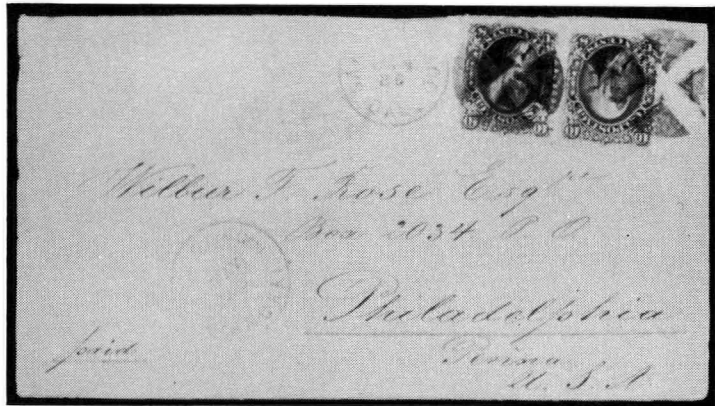 Wilbur F. Rose Esqre
Box 2034 P O
Philadelphia
Penna
U. S. A
paid